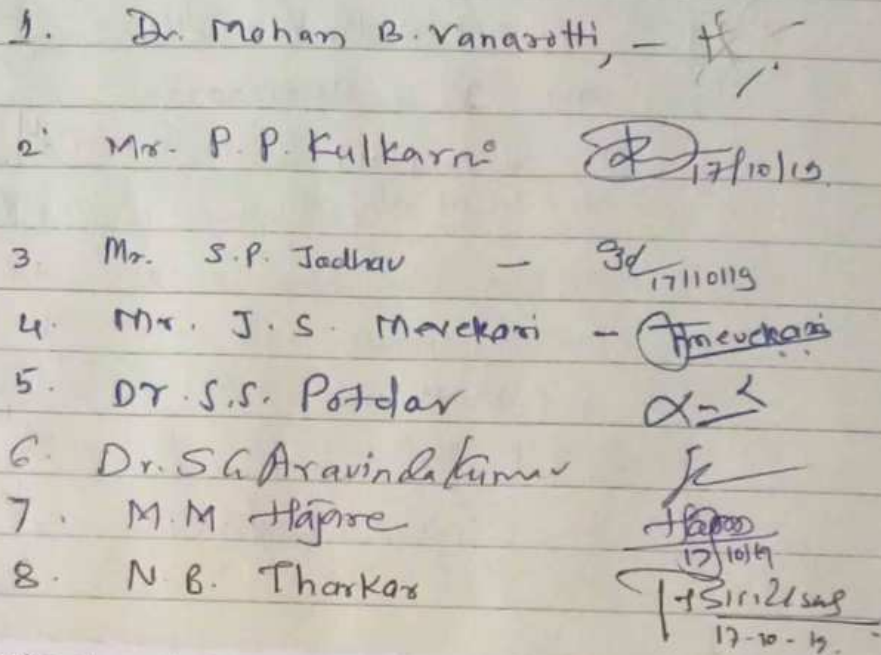 1. Dr. Mohan B. Vanarotti, -
2. Mr. P. P. Kulkarni 17/10/19.
3. Mr. S.P. Jadhav - 17/10/19
4. Mr. J. S. Mevekari - Jmevekari
5. Dr. S.S. Potdar
6. Dr. S G Aravinda Kumar
7. M. M Hajare 17/10/19
8. N. B. Tharkar 17-10-19.